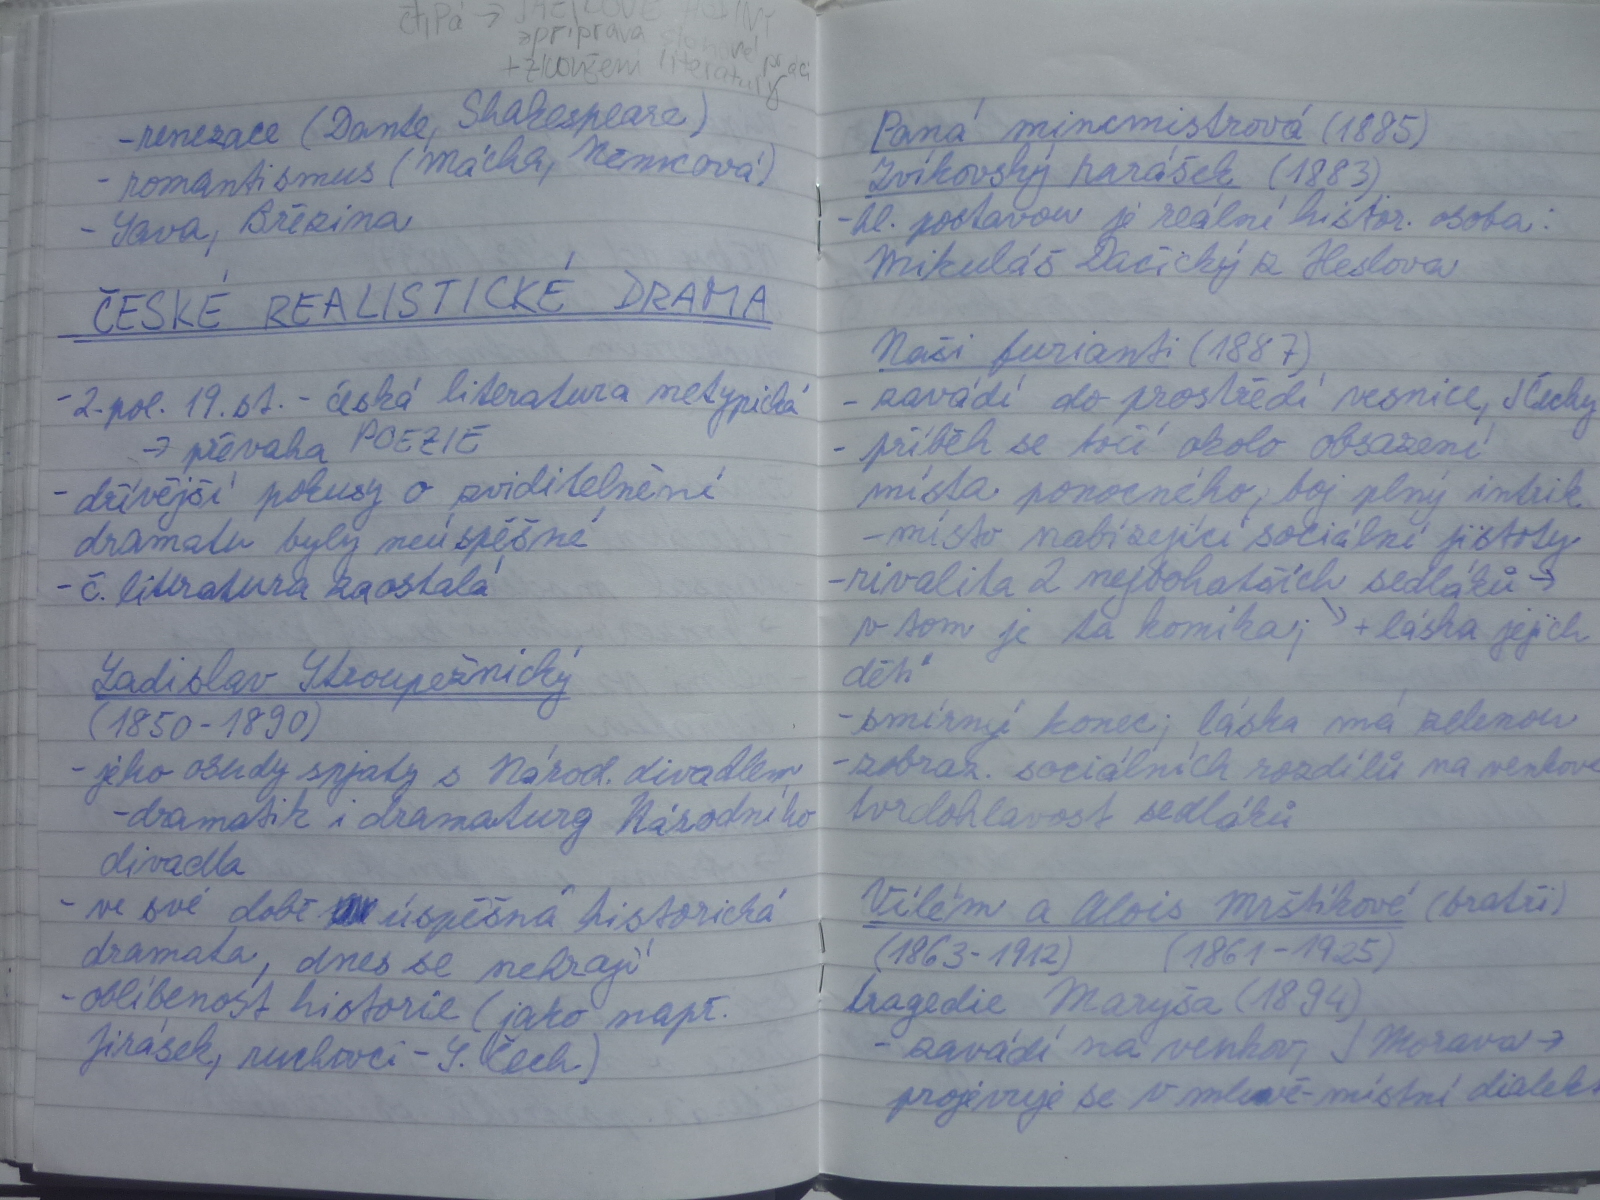 čtPá →
→příprava
+zkoušení literatury
-renezace (Dante, Shakespeare)
- romantismus (Mácha, Němcová)
- Sova, Březina
ČESKÉ REALISTICKÉ DRAMA
-2.pol. 19.st. - česká literatura netypická
→ převaha POEZIE
- dřívější pokusy o zviditelnění
dramatu byly neúspěšné
- č. literatura zaostalá
Ladislav Stroupežnický
(1850-1890)
- jeho osudy spjaty s Národ. divadlem
-dramatik i dramaturg Národního
divadla
- ve své době úspěšná historická
dramata, dnes se nehrají
- oblíbenost historie (jako např.
Jirásek, ruchovci - S. Čech)
Paná mincmistrová (1885)
Zvíkovský rarášek (1883)
- hl. postavou je reální histor. osoba:
Mikuláš Dačický z Heslova
Naši furianti (1887)
- zavádí do prostředí vesnice, J Čechy
- příběh se točí okolo obsazení
místa ponocného, boj plný intrik
-místo nabízející sociální jistoty
-rivalita 2 nejbohatších sedláků →
v tom je ta komika; ↘ + láska jejich
dětí
- smírný konec; láska má zelenou
-zobraz. sociálních rozdílů na venkově
tvrdohlavost sedláků
Vilém a Alois Mrštíkové (bratři)
(1863-1912) (1861-1925)
tragedie Maryša (1894)
- zavádí na venkov, J Morava →
projevuje se v mluvě-místní dialekt